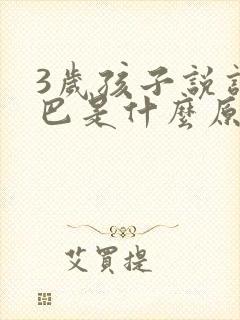 3歲孩子說
巴是什麼原
艾買提